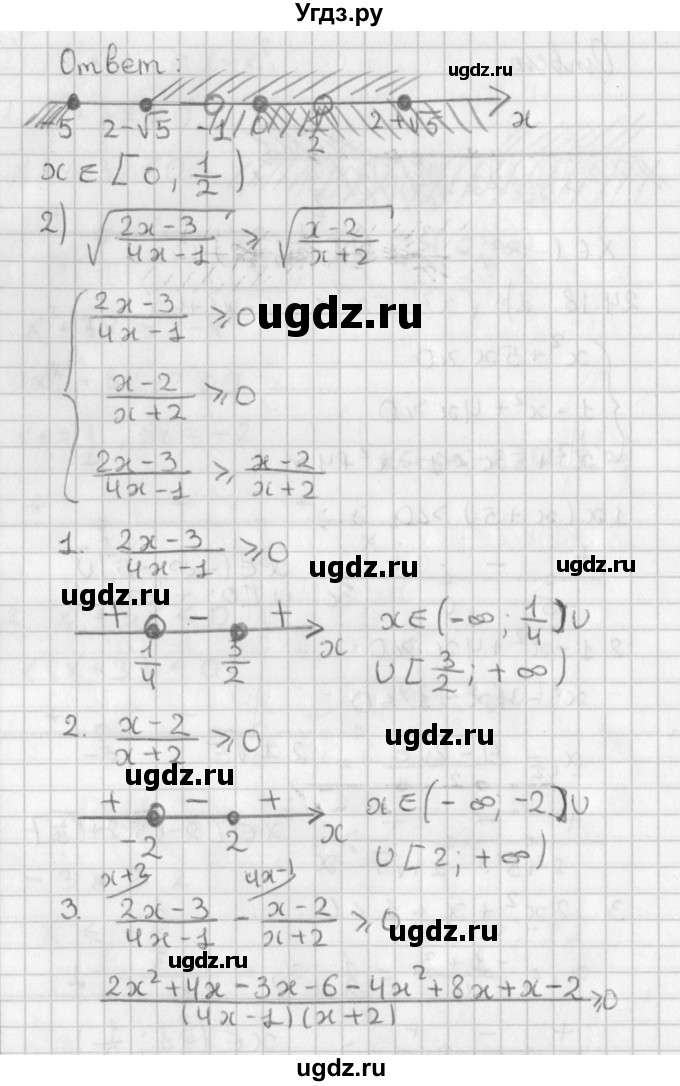 Угдз.ру
Ответ:
ugdz.ru
-5 2-√5 -1 0 1/2 2+√5 x
x ∈ [0, 1/2)
2) √((2x-3)/(4x-1)) ⩾ √((x-2)/(x+2))
{ (2x-3)/(4x-1) ⩾ 0
ugdz.ru
(x-2)/(x+2) ⩾ 0
(2x-3)/(4x-1) ⩾ (x-2)/(x+2)
1. (2x-3)/(4x-1) ⩾ 0
ugdz.ru ugdz.ru
ugdz.ru
+ - +
1/4 3/2 x
x ∈ (-∞; 1/4) ∪
∪ [3/2; +∞)
2. (x-2)/(x+2) ⩾ 0
ugdz.ru
ugdz.ru
+ - +
-2 2 x
x ∈ (-∞; -2) ∪
∪ [2; +∞)
x+2 4x-1
3. (2x-3)/(4x-1) - (x-2)/(x+2) ⩾ 0
ugdz.ru
ugdz.ru
(2x²+4x-3x-6-4x²+8x+x-2)/((4x-1)(x+2)) ⩾ 0
ugdz.ru